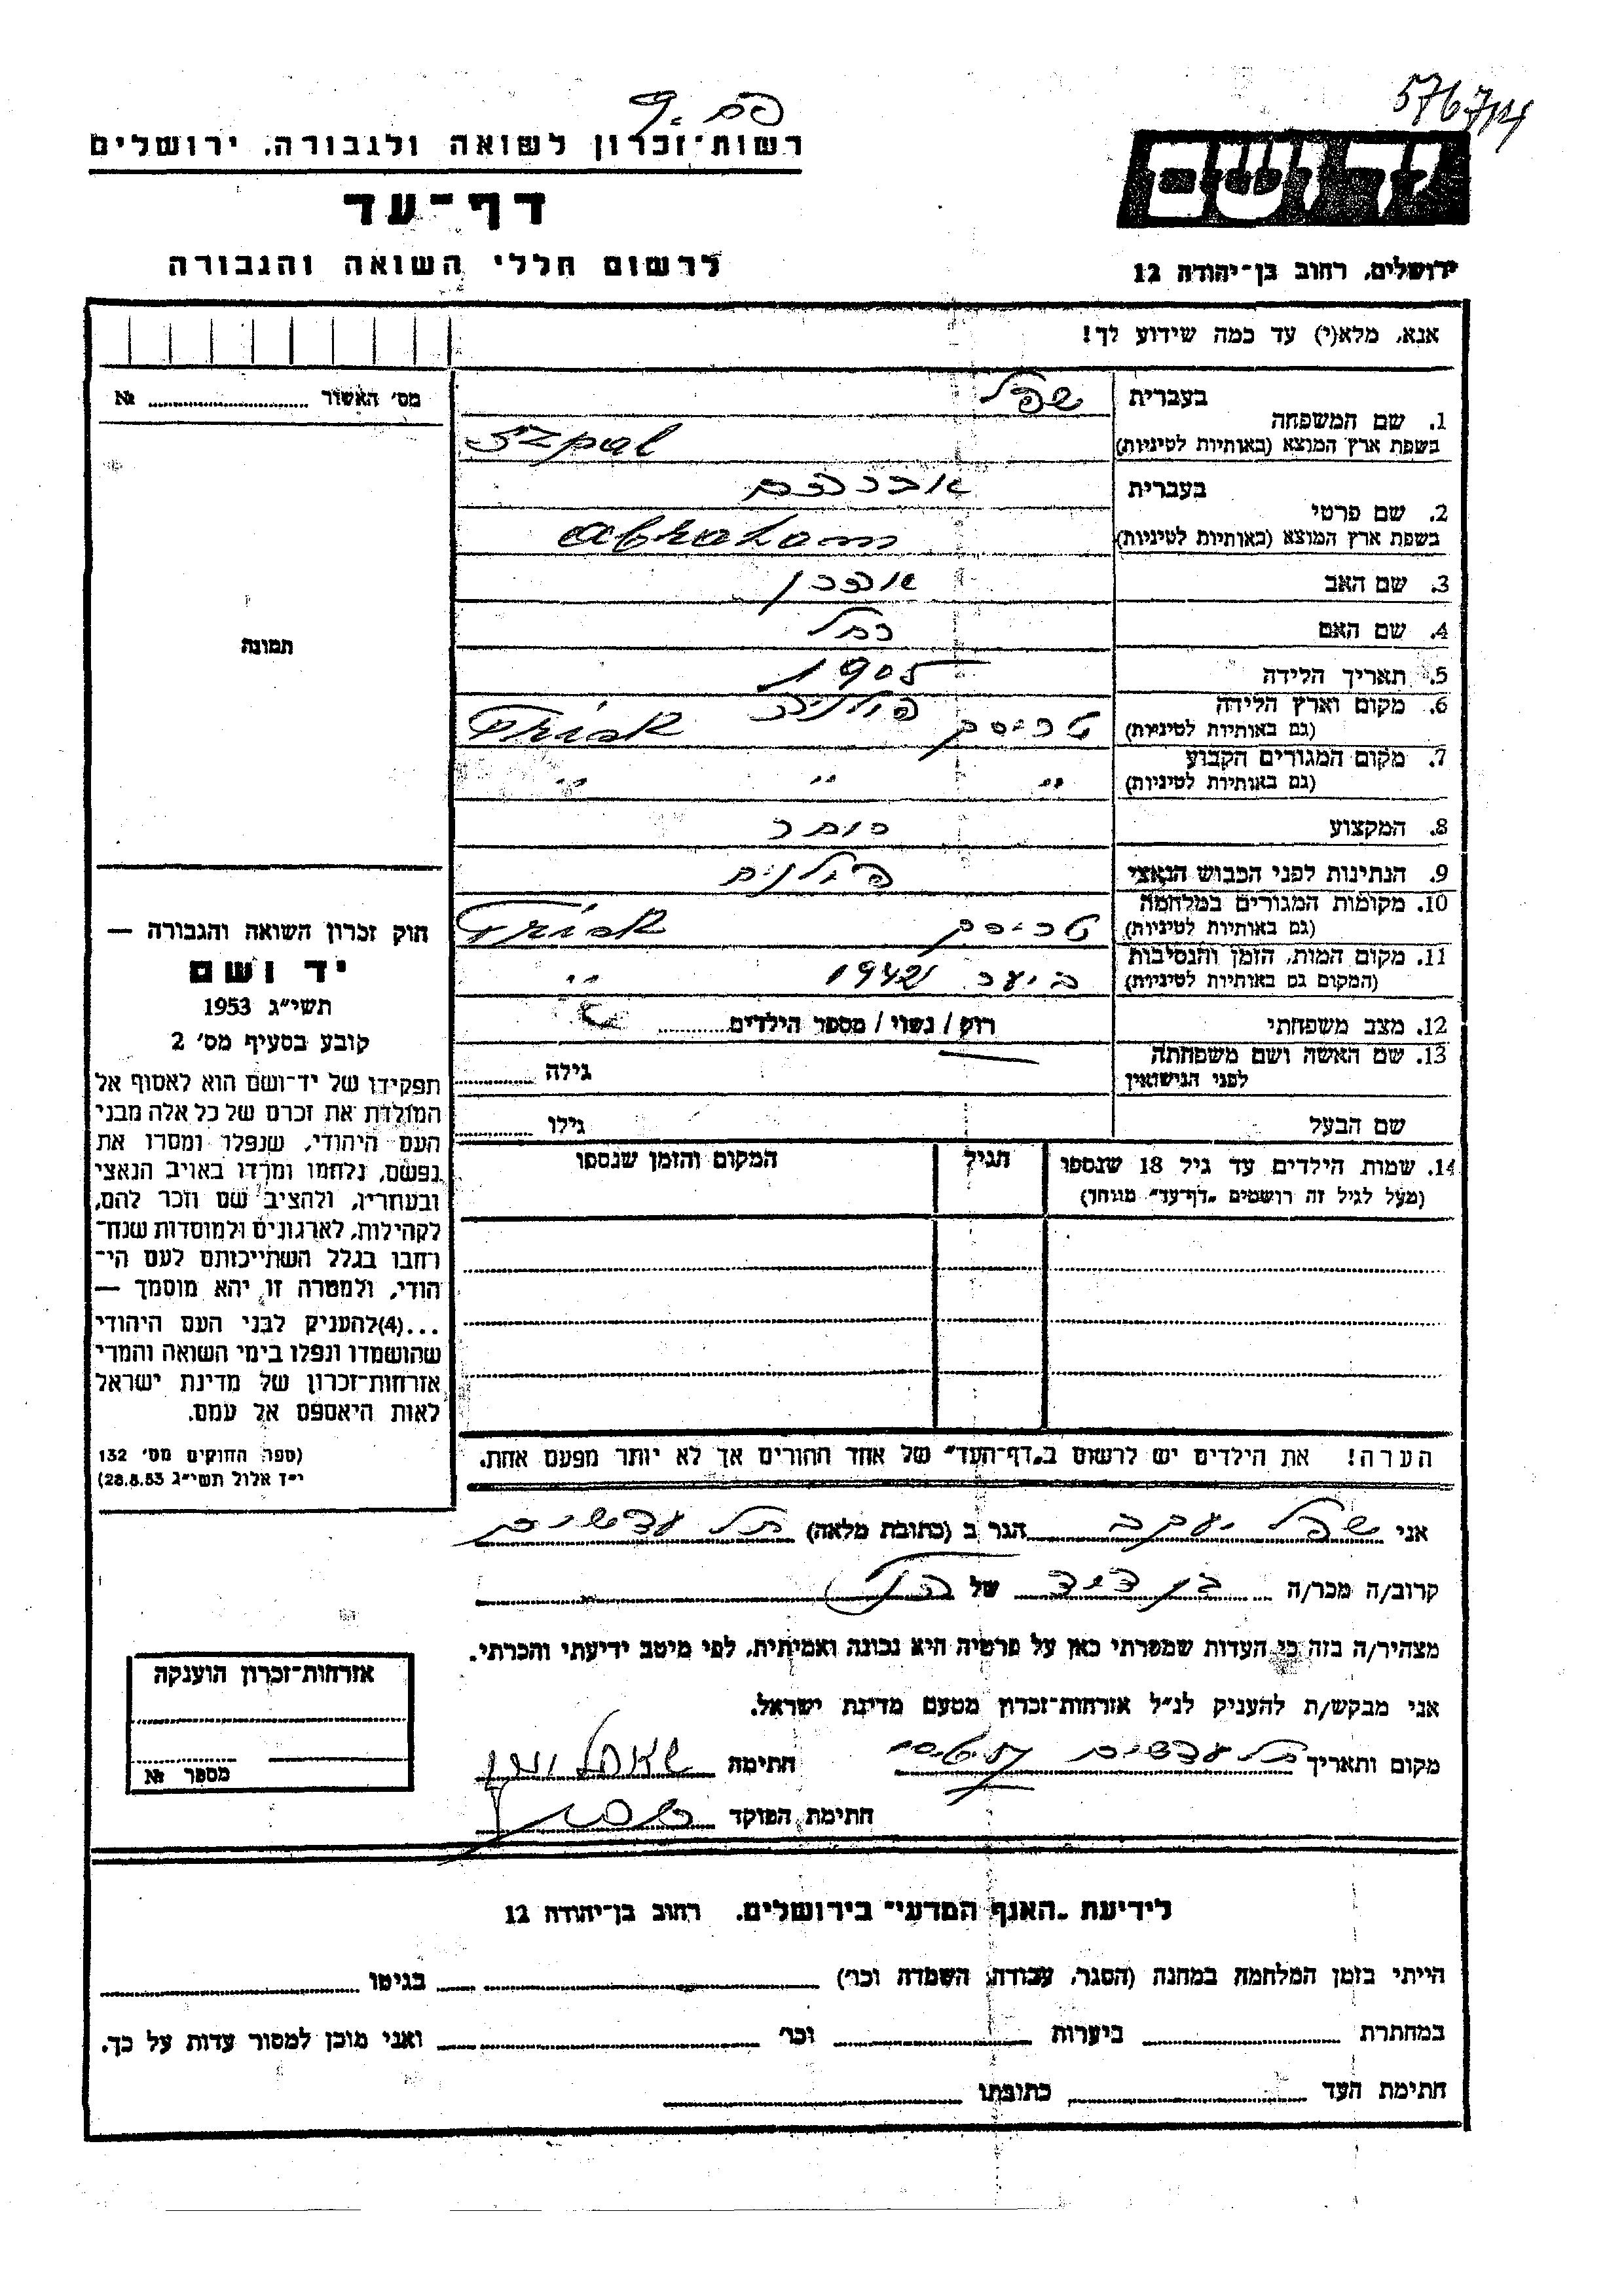 576714
רשות־זכרון לשואה ולגבורה, ירושלים
יד ושם
דף־עד
לרשום חללי השואה והגבורה
ירושלים, רחוב בן־יהודה 12
אנא, מלא(י) עד כמה שידוע לך!
מס׳ האשור № 
1. שם המשפחה
בעברית שפל
בשפת ארץ המוצא (באותיות לטיניות) Szpal
2. שם פרטי
בעברית אברהם
בשפת ארץ המוצא (באותיות לטיניות) Abraham
3. שם האב אהרן
4. שם האם רחל
5. תאריך הלידה 1905
6. מקום וארץ הלידה (גם באותיות לטיניות) טריסק פולניה Trisk
7. מקום המגורים הקבוע (גם באותיות לטיניות) " " "
8. המקצוע סוחר
9. הנתינות לפני הכבוש הנאצי פולנית
10. מקומות המגורים במלחמה (גם באותיות לטיניות) טריסק Trisk
11. מקום המות, הזמן והנסיבות (המקום גם באותיות לטיניות) ביער 1942 "
12. מצב משפחתי רווק / נשוי / מספר הילדים
13. שם האשה ושם משפחתה לפני הנישואין גילה
שם הבעל גילו
14. שמות הילדים עד גיל 18 שנספו (מעל לגיל זה רושמים „דף־עד” מיוחד) הגיל המקום והזמן שנספו
הערה! את הילדים יש לרשום ב„דף־העד” של אחד ההורים אך לא יותר מפעם אחת.
תמונה
חוק זכרון השואה והגבורה —
יד ושם
תשי״ג 1953
קובע בסעיף מס׳ 2
תפקידו של יד־ושם הוא לאסוף אל
המולדת את זכרם של כל אלה מבני
העם היהודי, שנפלו ומסרו את
נפשם, נלחמו ומרדו באויב הנאצי
ובעוזריו, ולהציב שם וזכר להם,
לקהילות, לארגונים ולמוסדות שנח־
רבו בגלל השתייכותם לעם הי־
הודי, ולמטרה זו יהא מוסמך —
...(4)להעניק לבני העם היהודי
שהושמדו ונפלו בימי השואה והמרי
אזרחות־זכרון של מדינת ישראל
לאות היאספם אל עמם.
(ספר החוקים מס׳ 132
י״ז אלול תשי״ג 28.8.53)
אני שפל יעקב הגר ב (כתובת מלאה) תל עדשים
קרוב/ה מכר/ה בן דוד של הנ״ל
מצהיר/ה בזה כי העדות שמסרתי כאן על פרטיה היא נכונה ואמיתית, לפי מיטב ידיעתי והכרתי.
אני מבקש/ת להעניק לנ״ל אזרחות־זכרון מטעם מדינת ישראל.
מקום ותאריך תל עדשים חתימה
חתימת הפוקד
אזרחות־זכרון הוענקה
מספר №
לידיעת „האגף המדעי” בירושלים, רחוב בן־יהודה 12
הייתי בזמן המלחמה במחנה (הסגר, עבודה, השמדה וכו׳) בגיטו
במחתרת ביערות וכו׳ ואני מוכן למסור עדות על כך.
חתימת העד כתובתו